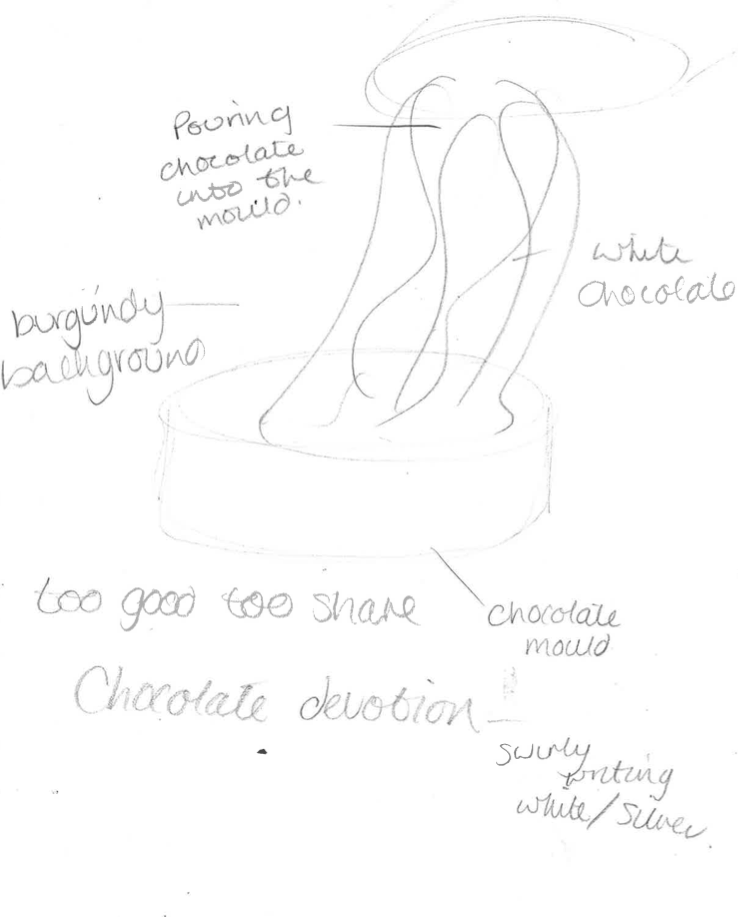 Pouring
chocolate
into the
mould.
white
chocolate
burgundy
background
too good too share
chocolate
mould
Chocolate devotion
swirly
writing
white/silver